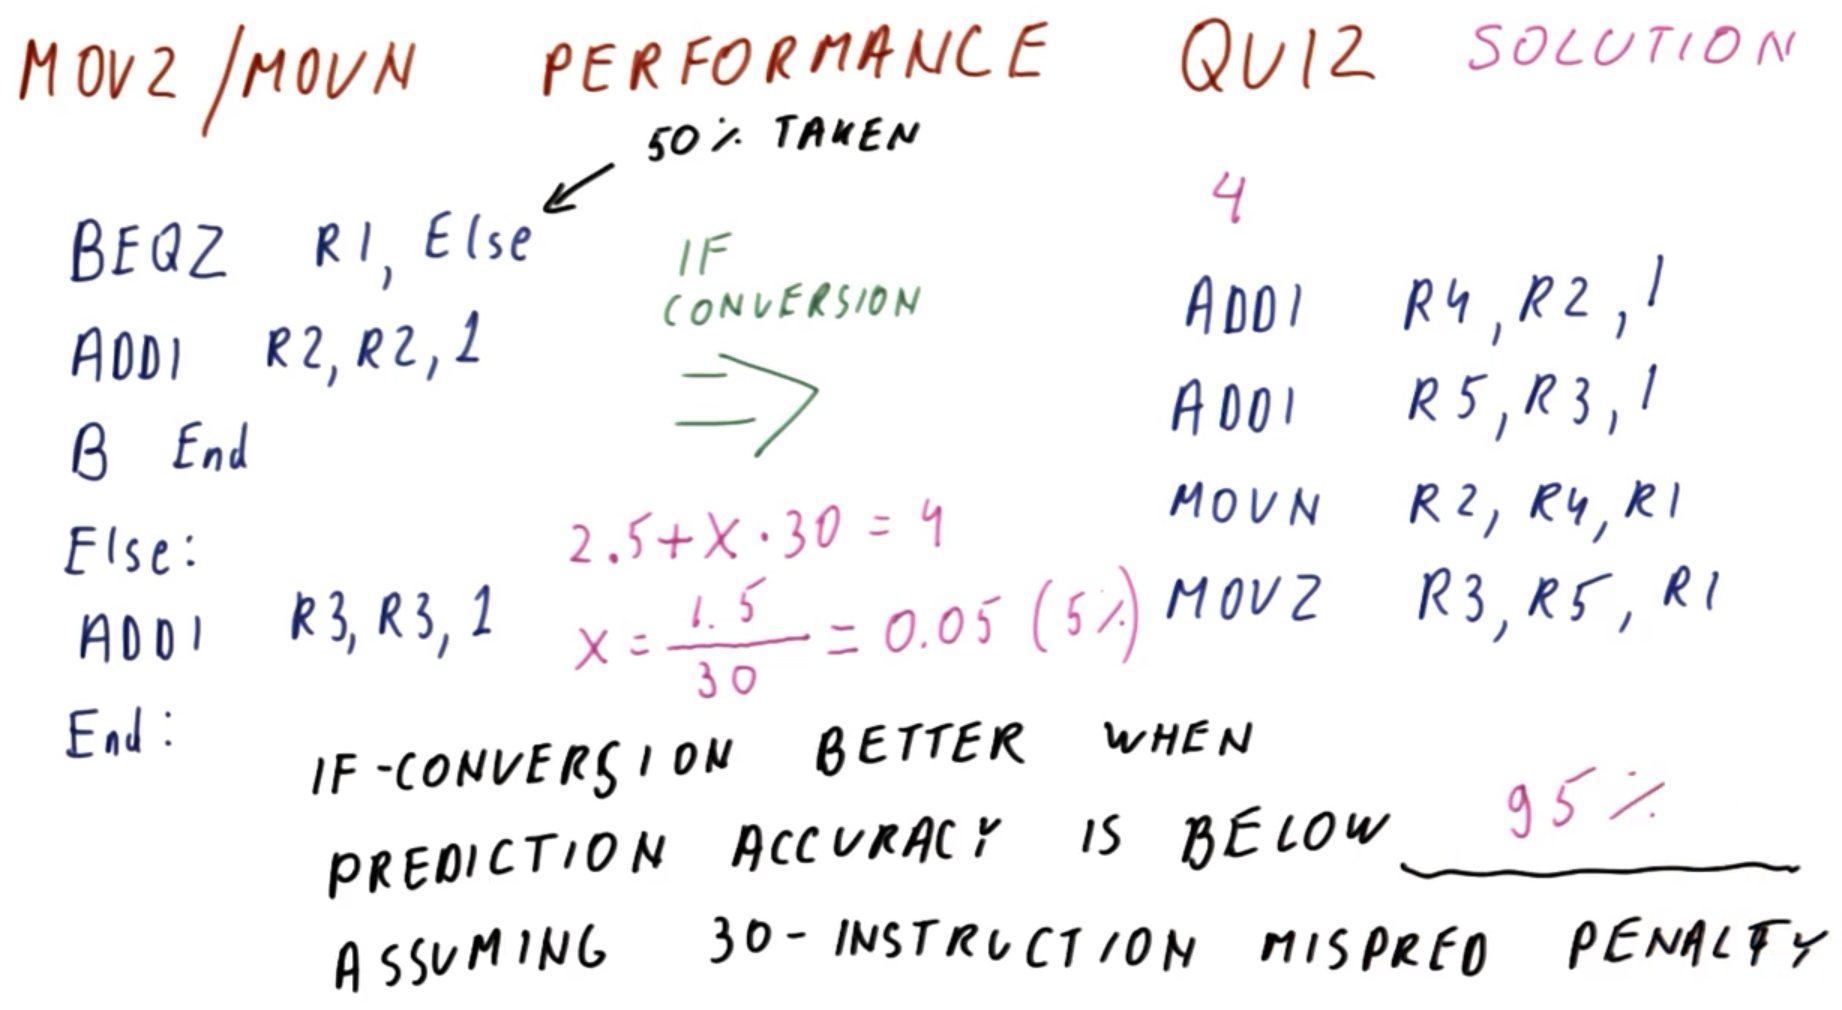 MOVZ/MOVN PERFORMANCE QUIZ SOLUTION
50% TAKEN
BEQZ R1, Else
ADDI R2, R2, 1
B End
Else:
ADDI R3, R3, 1
End:
IF
CONVERSION
4
ADDI R4, R2, 1
ADDI R5, R3, 1
MOVN R2, R4, R1
MOVZ R3, R5, R1
2.5+X·30=4
X=1.5/30=0.05 (5%)
IF-CONVERSION BETTER WHEN
PREDICTION ACCURACY IS BELOW 95%
ASSUMING 30-INSTRUCTION MISPRED PENALTY